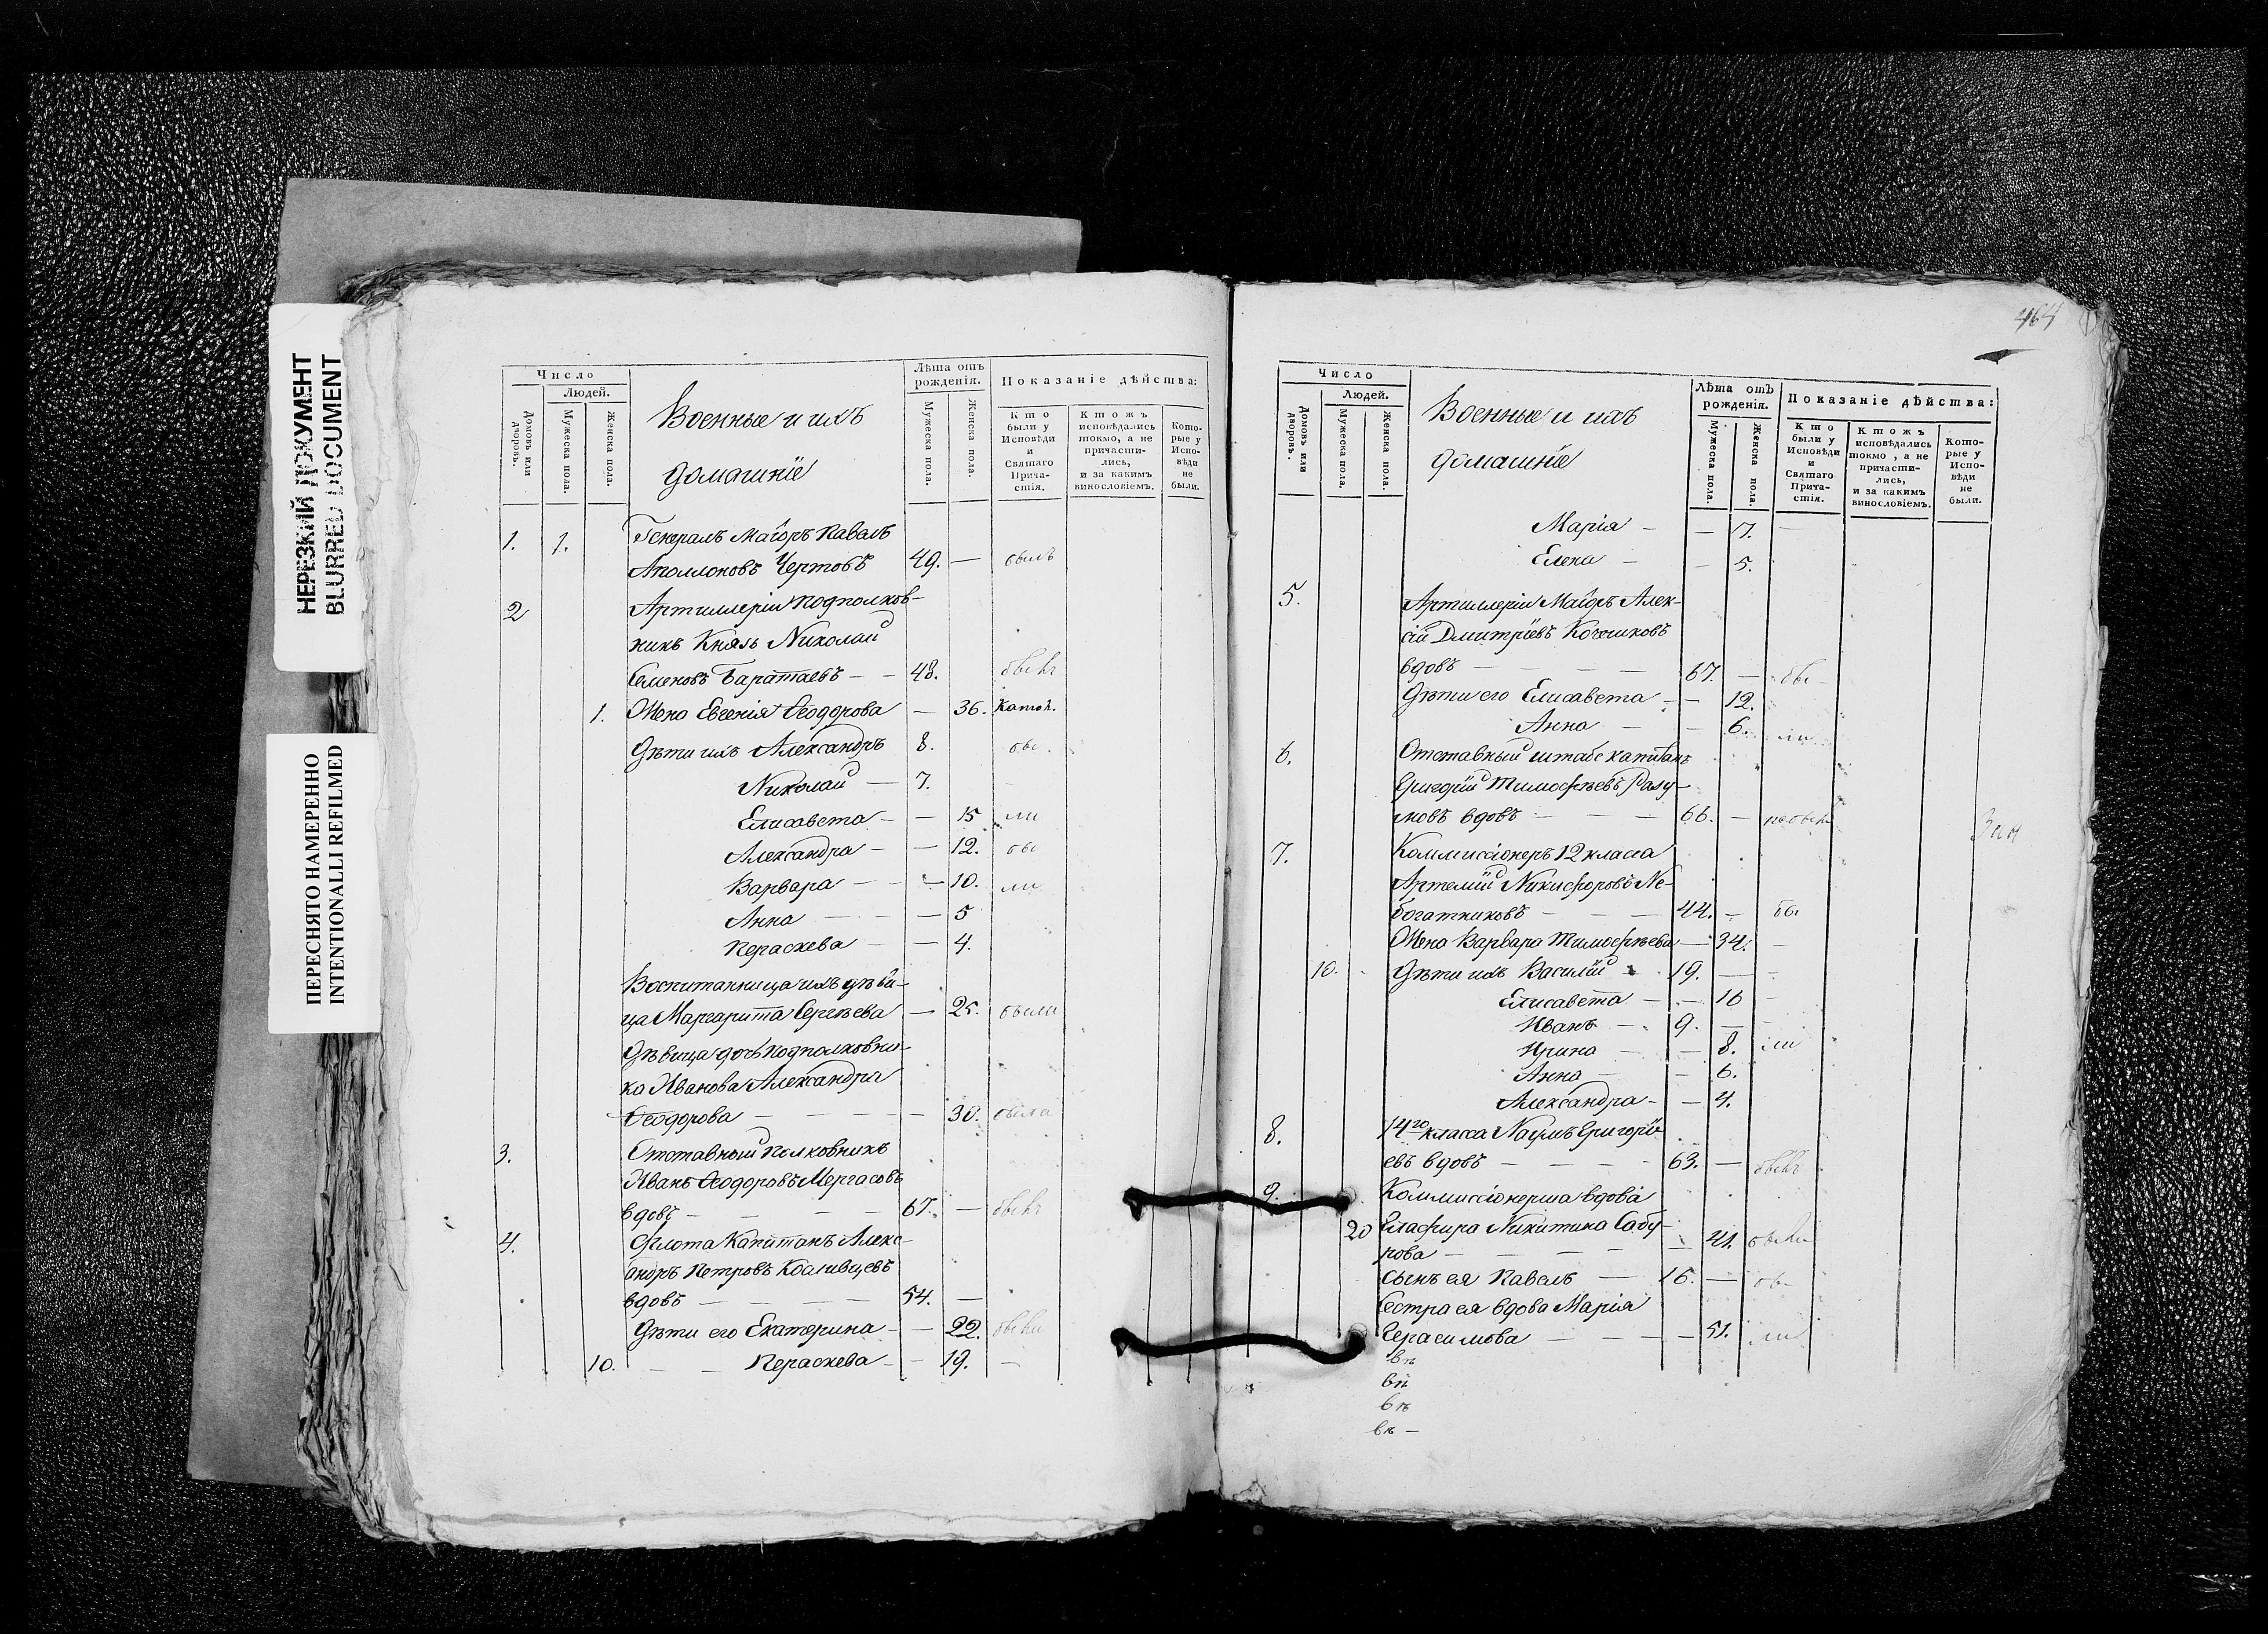 НЕРЕЗКИЙ ДОКУМЕНТ
BLURRED DOCUMENT
ПЕРЕСНЯТО НАМЕРЕННО
INTENTIONALLI REFILMED
Число
Людей.
Домовъ или дворовъ.
Мужеска пола.
Женска пола.
Военные и ихъ
домашнїе
Лѣта отъ рожденія.
Мужеска пола.
Женска пола.
Показаніе дѣйства:
Кто были у Исповѣди и Святаго Прича-стія.
Ктожъ исповѣдались токмо, а не причасти-лись, и за какимъ винословіемъ.
Кото-рые у Испо-вѣди не были.
1. 1. Генералъ Маіоръ Павелъ
Аполлоновъ Чертовъ 49. — былъ
2 Артиллеріи Подполков-
никъ Князь Николай
Семеновъ Баратаевъ — — 48.
1. Жена Евгенія Ѳеодорова — 36. Катол.
Дѣти ихъ Александръ 8. бы
Николай — 7. —
Елисавета — — 15 ли
Александра — — 12. бы
Варвара — — 10. ли
Анна — — 5
Параскева — — 4.
Воспитанница ихъ дѣви-
ца Маргарита Сергѣева — 25. были
Дѣвица дочь Подполковни-
ка Иванова Александра
Ѳеодорова — — — — 30. была
3. Отставный Полковникъ
Иванъ Ѳеодоровъ Мергасовъ
вдовъ — — — — 67. — былъ
4. Флота Капитанъ Алекс-
андръ Петровъ
вдовъ — — — — 54. —
Дѣти его Екатерина — — 22. были
10. — — Параскева — — 19. —
464
Число
Людей.
Домовъ или дворовъ.
Мужеска пола.
Женска пола.
Военные и ихъ
домашнїе
Лѣта отъ рожденія.
Мужеска пола.
Женска пола.
Показаніе дѣйства:
Кто были у Исповѣди и Святаго Прича-стія.
Ктожъ исповѣдались токмо, а не причасти-лись, и за какимъ винословіемъ.
Кото-рые у Испо-вѣди не были.
Марія — — 7. —
Елена — — 5.
5. Артиллеріи Маіоръ Алек-
сій Дмитріевъ
вдовъ — — — — 67. — бы
Дѣти его Елисавета — — 12.
Анна — — 6. ли
6. Отставный штабс капитанъ
Григорій Тимофѣевъ Разу-
мовъ вдовъ — — — 66. —
7. Коммиссіонеръ 12 класса
Артемій Никифоровъ Не-
богатиковъ — — — 44. — бы
Жена Варвара Тимофѣева — 34. —
10. Дѣти ихъ Василій 19. — —
Елисавета — — 16 —
Иванъ — 9. — —
Ирина — — 8. ли
Анна — — 6.
Александра — — 4.
8. 14го класса Наумъ Григорі-
евъ вдовъ — — — — 63. — былъ
9. Коммиссіонерша вдова
20 Глафира Никитина Сабу-
рова — — — — — 41. были
Сынъ ея Павелъ — 16. — бы
Сестра ея вдова Марія
Герасимова — — — — 51. ли
вѣ
вѣ
вѣ
вѣ —